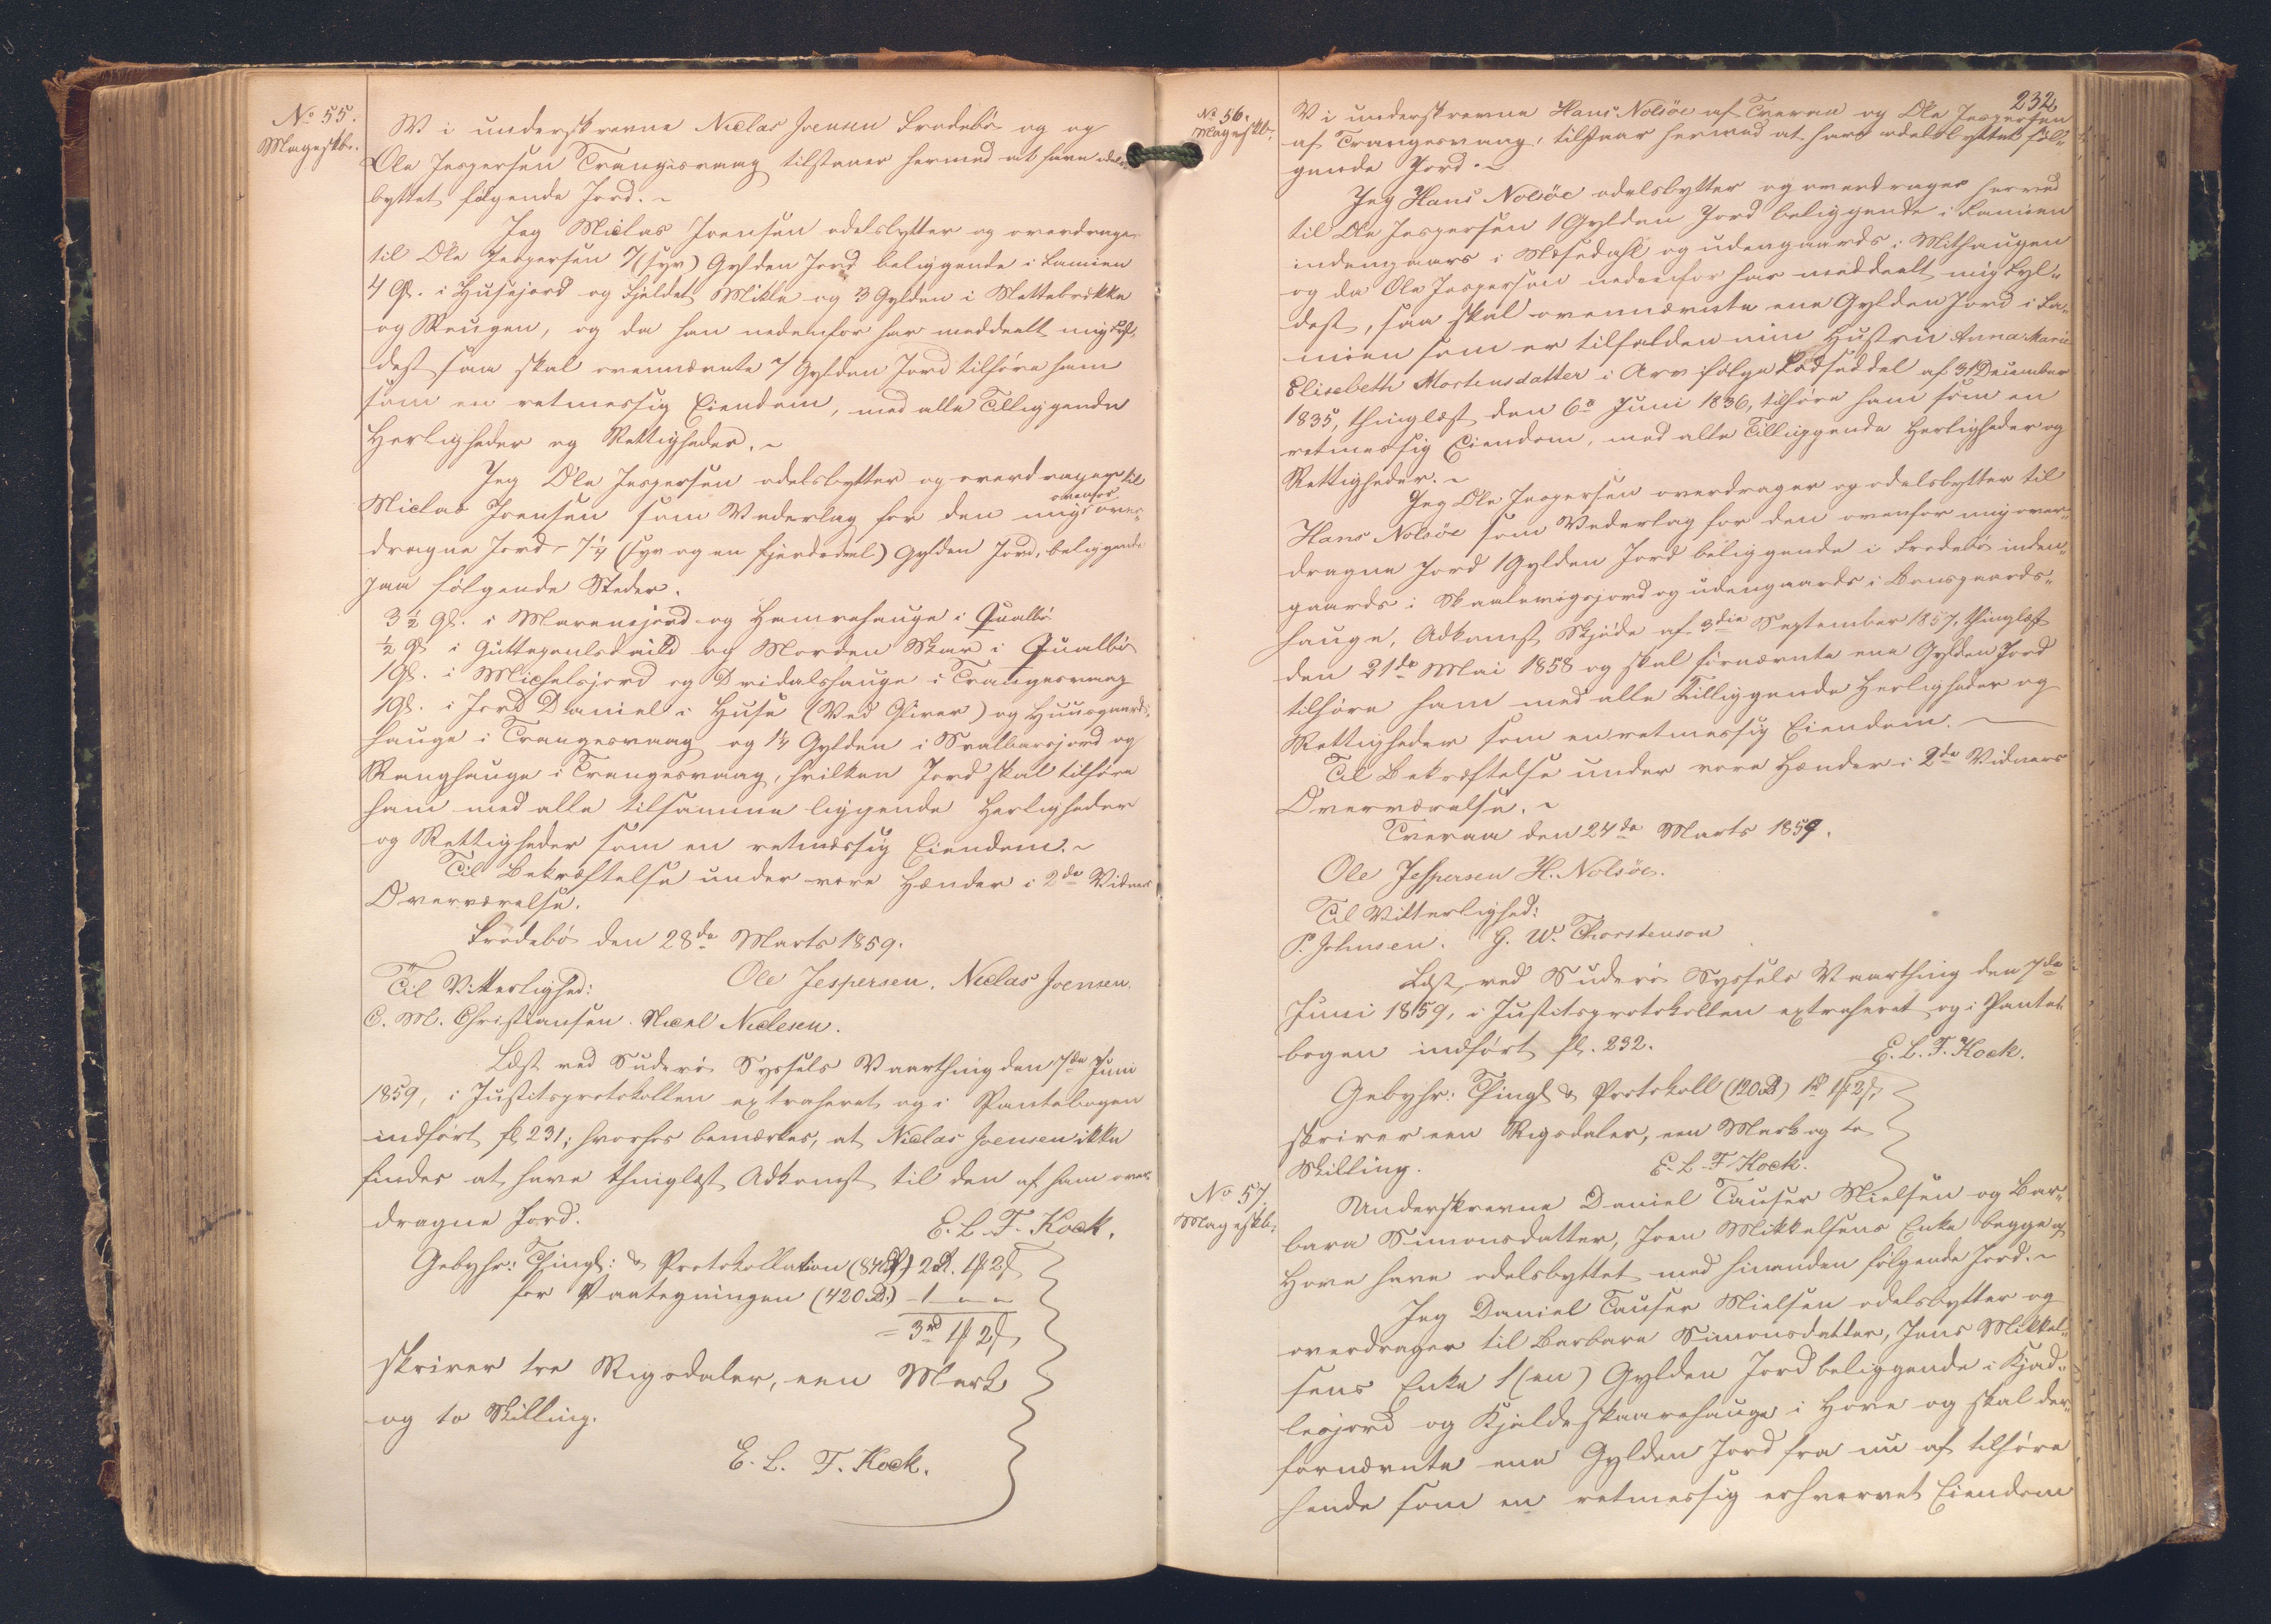 No 55.
Mageskb.
Vi underskrevne Niclas Joensen Frodebø og og
Ole Jespersen Trangisvaag tilstaaer hermed at have odels-
byttet følgende Jord. ~
Jeg Niclas Joensen odelsbytter og overdrager
til Ole Jespersen 7 (syv) Gylden Jord beliggende i Lamien
4 Gl. i Husejord og Fjeldet Mikla og 3 Gylden i Slettebrekka
og Reugen, og da han nedenfor har meddeelt mig Fyl-
dest saa skal ovennævnte 7 Gylden Jord tilhøre ham
som en retmessig Eiendom, med alle Tilliggende
Herligheder og Rettigheder. ~
Jeg Ole Jespersen odelsbytter og overdrager til
Niclas Joensen som Vederlag for den mig ovenfor over-
dragne Jord – 7¼ (syv og en fjerdedeel) Gylden Jord, beliggende
paa følgende Steder.
3½ Gl. i Marenejord og Hamrahauge i Qualbø
½ Gl. i og Norden Skar i Qualbø
1 Gl. i Michelsjord og Dridalshauge i Trangesvaag
1 Gl. i Jord Daniel i Huse (Ved Giver) og Huusgaards-
hauge i Trangesvaag og 1¼ Gylden i Svalbarsjord og
Ranghauge i Trangesvaag, hvilken Jord skal tilhøre
ham med alle tilsamme liggende Herligheder
og Rettigheder som en retmæssig Eiendom. ~
Til Bekræftelse under vore Hænder i 2de Vidners
Overværelse.
Frodebø den 28de Marts 1859.
Til Vitterlighed: Ole Jespersen. Niclas Joensen.
C. M. Christiansen. Niclesen.
Læst ved Suderø Syssels Vaarthing den 7de Juni
1859, i Justitsprotokollen extraheret og i Pantebogen
indført fl 231; hvorhos bemærkes, at Niclas Joensen ikke
findes at have thinglæst Adkomst til den af ham over-
dragne Jord.
E. L. T. Kock.
Gebyhr: Thingl: & Protokollation 2 Rd. 1 ₻ 2 ß
for Paategningen (420 Rd.) – 1 – –
= 3 rd 1 ₻ 2 ß
skriver tre Rigsdaler, een Mark
og to Skilling.
E. L. T. Kock.
232
No 56.
Mageskb.
Vi underskrevne Hans Nolsøe af Tveraa og Ole Jespersen
af Trangesvaag, tilstaar hermed at have odelsbyttet føl-
gende Jord. ~
Jeg Hans Nolsøe odelsbytter og overdrager herved
til Ole Jespersen 1 Gylden Jord beliggende i Lamien
indengaars i og udengaards i Mithaugen
og da Ole Jespersen nedenfor har meddeelt mig Fyl-
dest, saa skal ovennævnte ene Gylden Jord i La-
mien som er tilfalden min Hustru Anna Marie
Elisebeth Mortensdatter i Arv ifølge Lodseddel af 31 December
1835, thinglæst den 6te Juni 1836, tilhøre ham som en
retmessig Eiendom, med alle Tilliggende Herligheder og
Rettigheder. ~
Jeg Ole Jespersen overdrager og odelsbytter til
Hans Nolsøe som Vederlag for den ovenfor mig over-
dragne Jord 1 Gylden Jord beliggende i Frodebø inden-
gaards i Skaalevigsjord og udengaards i Bønsgaards-
hauge, Adkomst Skjøde af 3die September 1857, thinglæst
den 21de Mai 1858 og skal førnævnte ene Gylden Jord
tilhøre ham med alle Tilliggende Herligheder og
Rettigheder som en retmessig Eiendom.
Til Bekræftelse under vore Hænder i 2de Vidners
Overværelse. ~
Tveraa den 24de Marts 1859.
Ole Jespersen H. Nolsøe.
Til Vitterlighed:
P. Johnsen. G. W. Thorstenson
Læst ved Suderø Syssels Vaarthing den 7de
Juni 1859, i Justitsprotokollen extraheret og i Pante-
bogen indført fl. 232.
E. L. T. Kock.
Gebyhr: Thingl & Protokoll (120 Rd) 1 rd 1 ₻ 2 ß,
skriver een Rigsdaler, een Mark og to
Skilling.
E. L. T Kock.
No 57.
Mageskb.
Underskrevne Daniel Tauser Nielsen og Bar-
bara Simonsdatter, Joen Mikkelsens Enke begge af
Hove have odelsbyttet med hinanden følgende Jord: ~
Jeg Daniel Tauser Nielsen odelsbytter og
overdrager til Barbara Simonsdatter, Jens Mikkel-
sens Enke 1 (en) Gylden Jord beliggende i Kjad-
lesjord og Kjeldeskaarehauge i Hove og skal der-
fornævnte ene Gylden Jord fra nu af tilhøre
hende som en retmessig erhvervet Eiendom